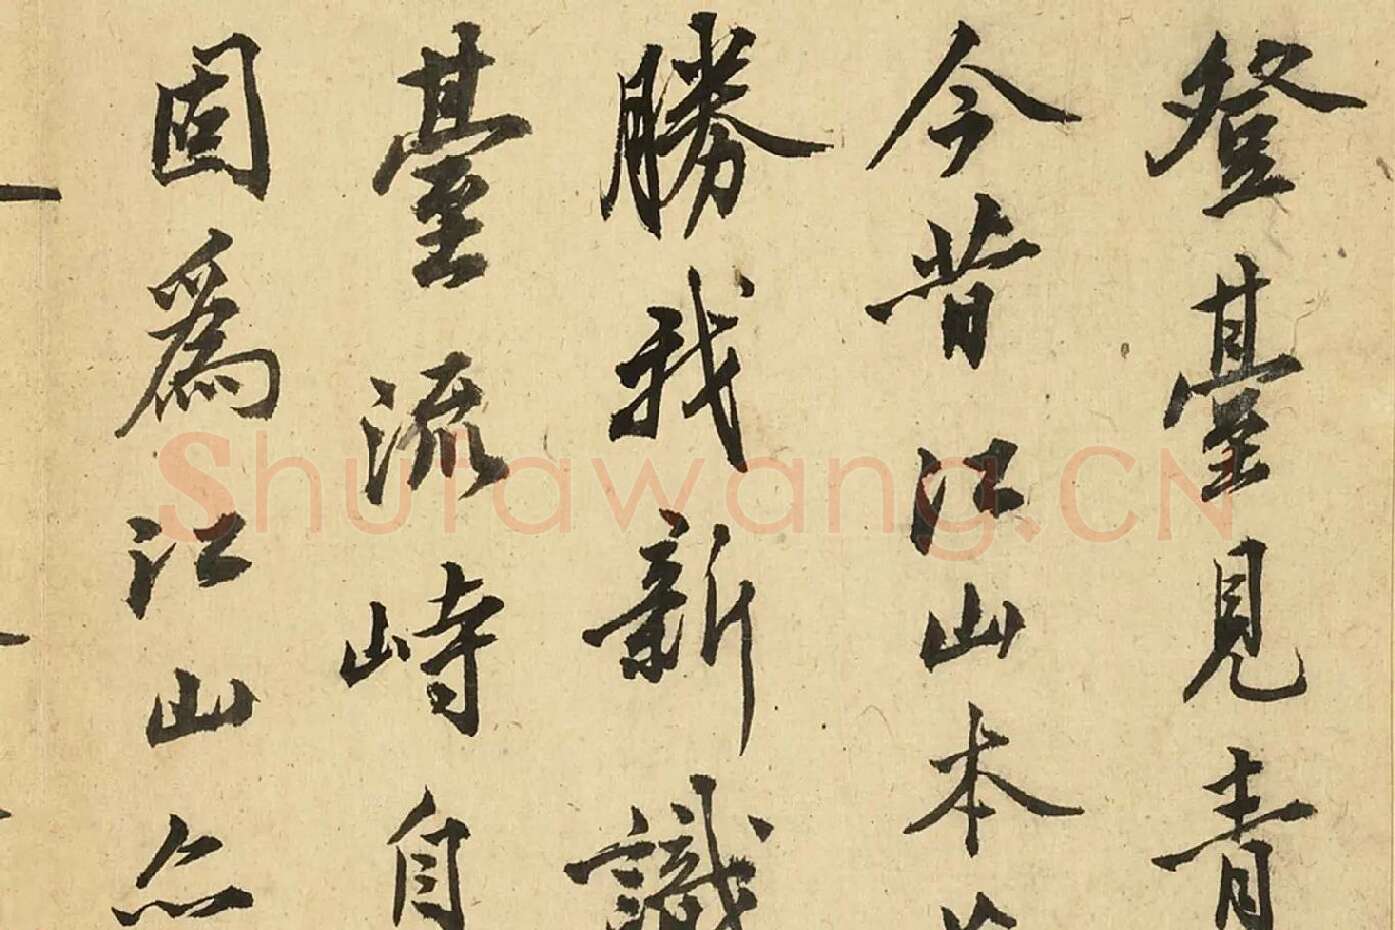 登臺見青
今昔江山本
勝我新識
臺流峙自
固為江山亦
Shufawang.CN